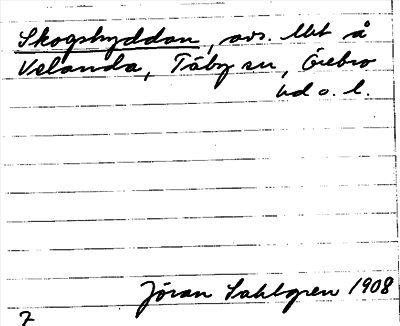 Skogshyddan, avs. Utit å
Velanda, Täby sn, Örebro
hd o. l.
Jöran Sahlgren 1908
7